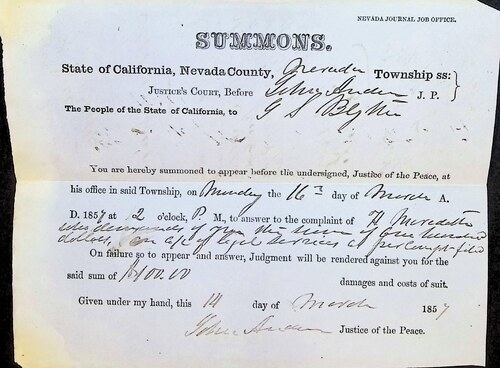 NEVADA JOURNAL JOB OFFICE.
SUMMONS.
State of California, Nevada County, Nevada Township ss:
Justice's Court, Before John Anderson J. P.
The People of the State of California, to G S Blythe
You are hereby summoned to appear before the undersigned, Justice of the Peace, at
his office in said Township, on Monday the 16th day of March A.
D. 1857 at 2 o'clock, P. M., to answer to the complaint of H Meredith
who demands of you the sum of one hundred
dollars, on a/c of legal services as per compt filed
On failure so to appear and answer, Judgment will be rendered against you for the
said sum of $100.00 damages and costs of suit.
Given under my hand, this 14 day of March 1857
John Anderson Justice of the Peace.